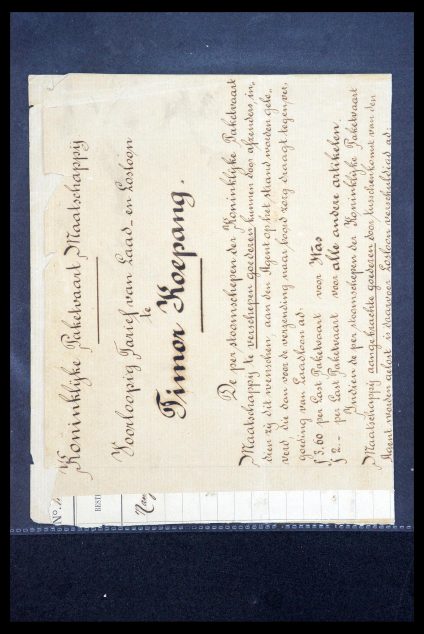 Koninklijke Paketvaart Maatschappij
Voorloopig Tarief van Laad- en Losloon
te
Timor Koepang.
De per stoomschepen der Koninklijke Paketvaart
Maatschappij te verschepen goederen kunnen door afzenders, in,
dien zij die wenschen, aan den Agent op het strand worden gele,
verd, die dan voor de verzending naar boord zorg draagt tegen ver,
goeding van Laadloon ad:
f 3.60 per Last Paketvaart voor Was
f 2.- per Last Paketvaart voor alle andere artikelen.
Indien de per stoomschepen der Koninklijke Paketvaart
Maatschappij aangebrachte goederen door tusschenkomst van den
Agent worden gelost is daarvoor Losloon verschuldigd ad:
No.
BESTE